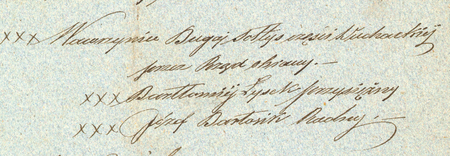 xxx Wawrzyniec Bugaj Sołtys części
przez Rząd obrany. —
xxx Bartłomiéj Łysek Przysiężny
xxx Józef Bartosik Radny. —